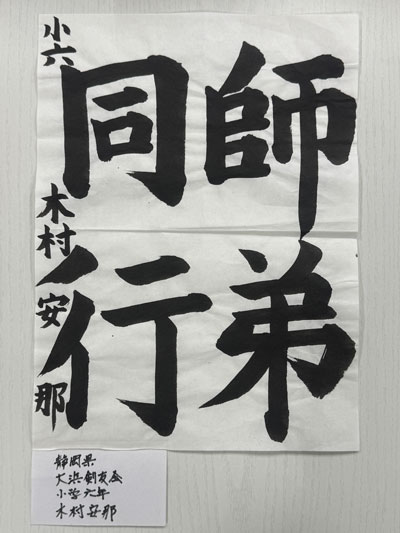 師弟
同行
小六 木村安那
静岡県
大浜剣友会
小学六年
木村安那